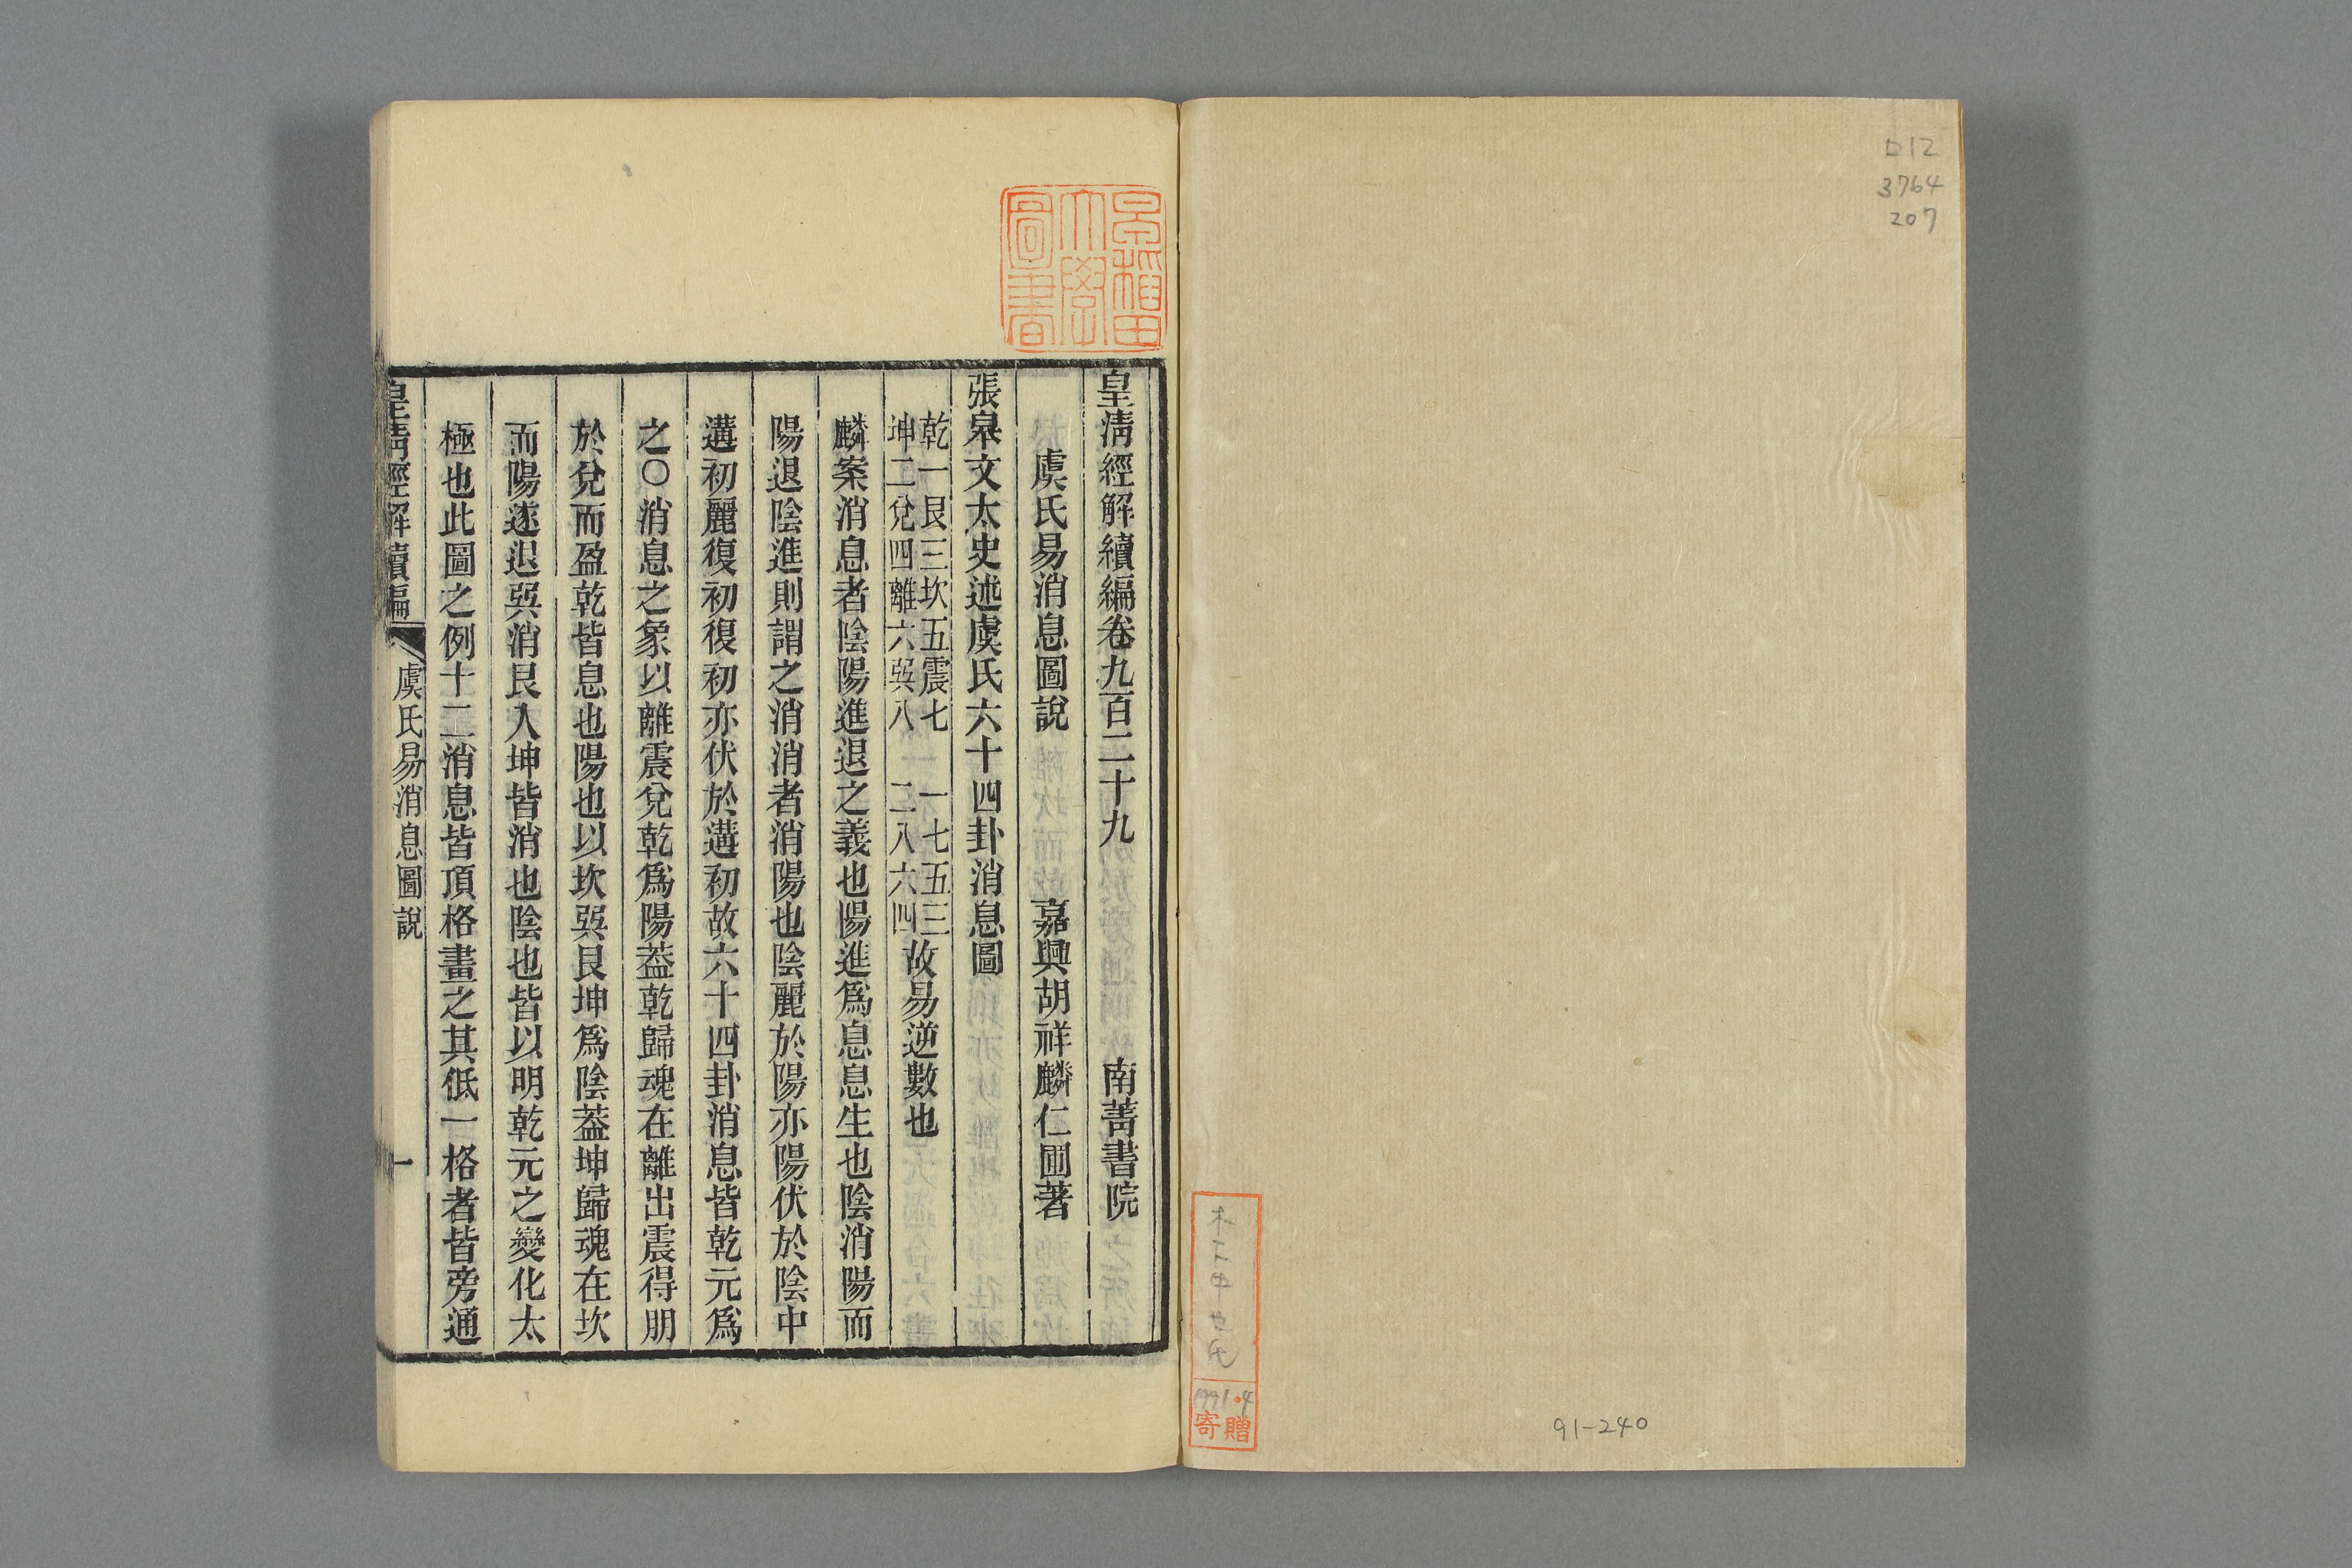 ロ12
3764
207
91-240
寄贈
早稻田大學圖書
皇淸經解續編卷九百二十九
南菁書院
虞氏易消息圖說
嘉興胡祥麟仁圃著
張皋文太史述虞氏六十四卦消息圖
乾一艮三坎五震七　一七五三
坤二兌四離六巽八　二八六四
故易逆數也
麟案消息者陰陽進退之義也陽進爲息息生也陰消陽而
陽退陰進則謂之消消者消陽也陰麗於陽亦陽伏於陰中
遘初麗復初復初亦伏於遘初故六十四卦消息皆乾元爲
之〇消息之象以離震兌乾爲陽葢乾歸魂在離出震得朋
於兌而盈乾皆息也陽也以坎巽艮坤爲陰葢坤歸魂在坎
而陽遂退巽消艮入坤皆消也陰也皆以明乾元之變化太
極也此圖之例十二消息皆頂格畫之其低一格者皆旁通
皇淸經解續編
虞氏易消息圖說
一